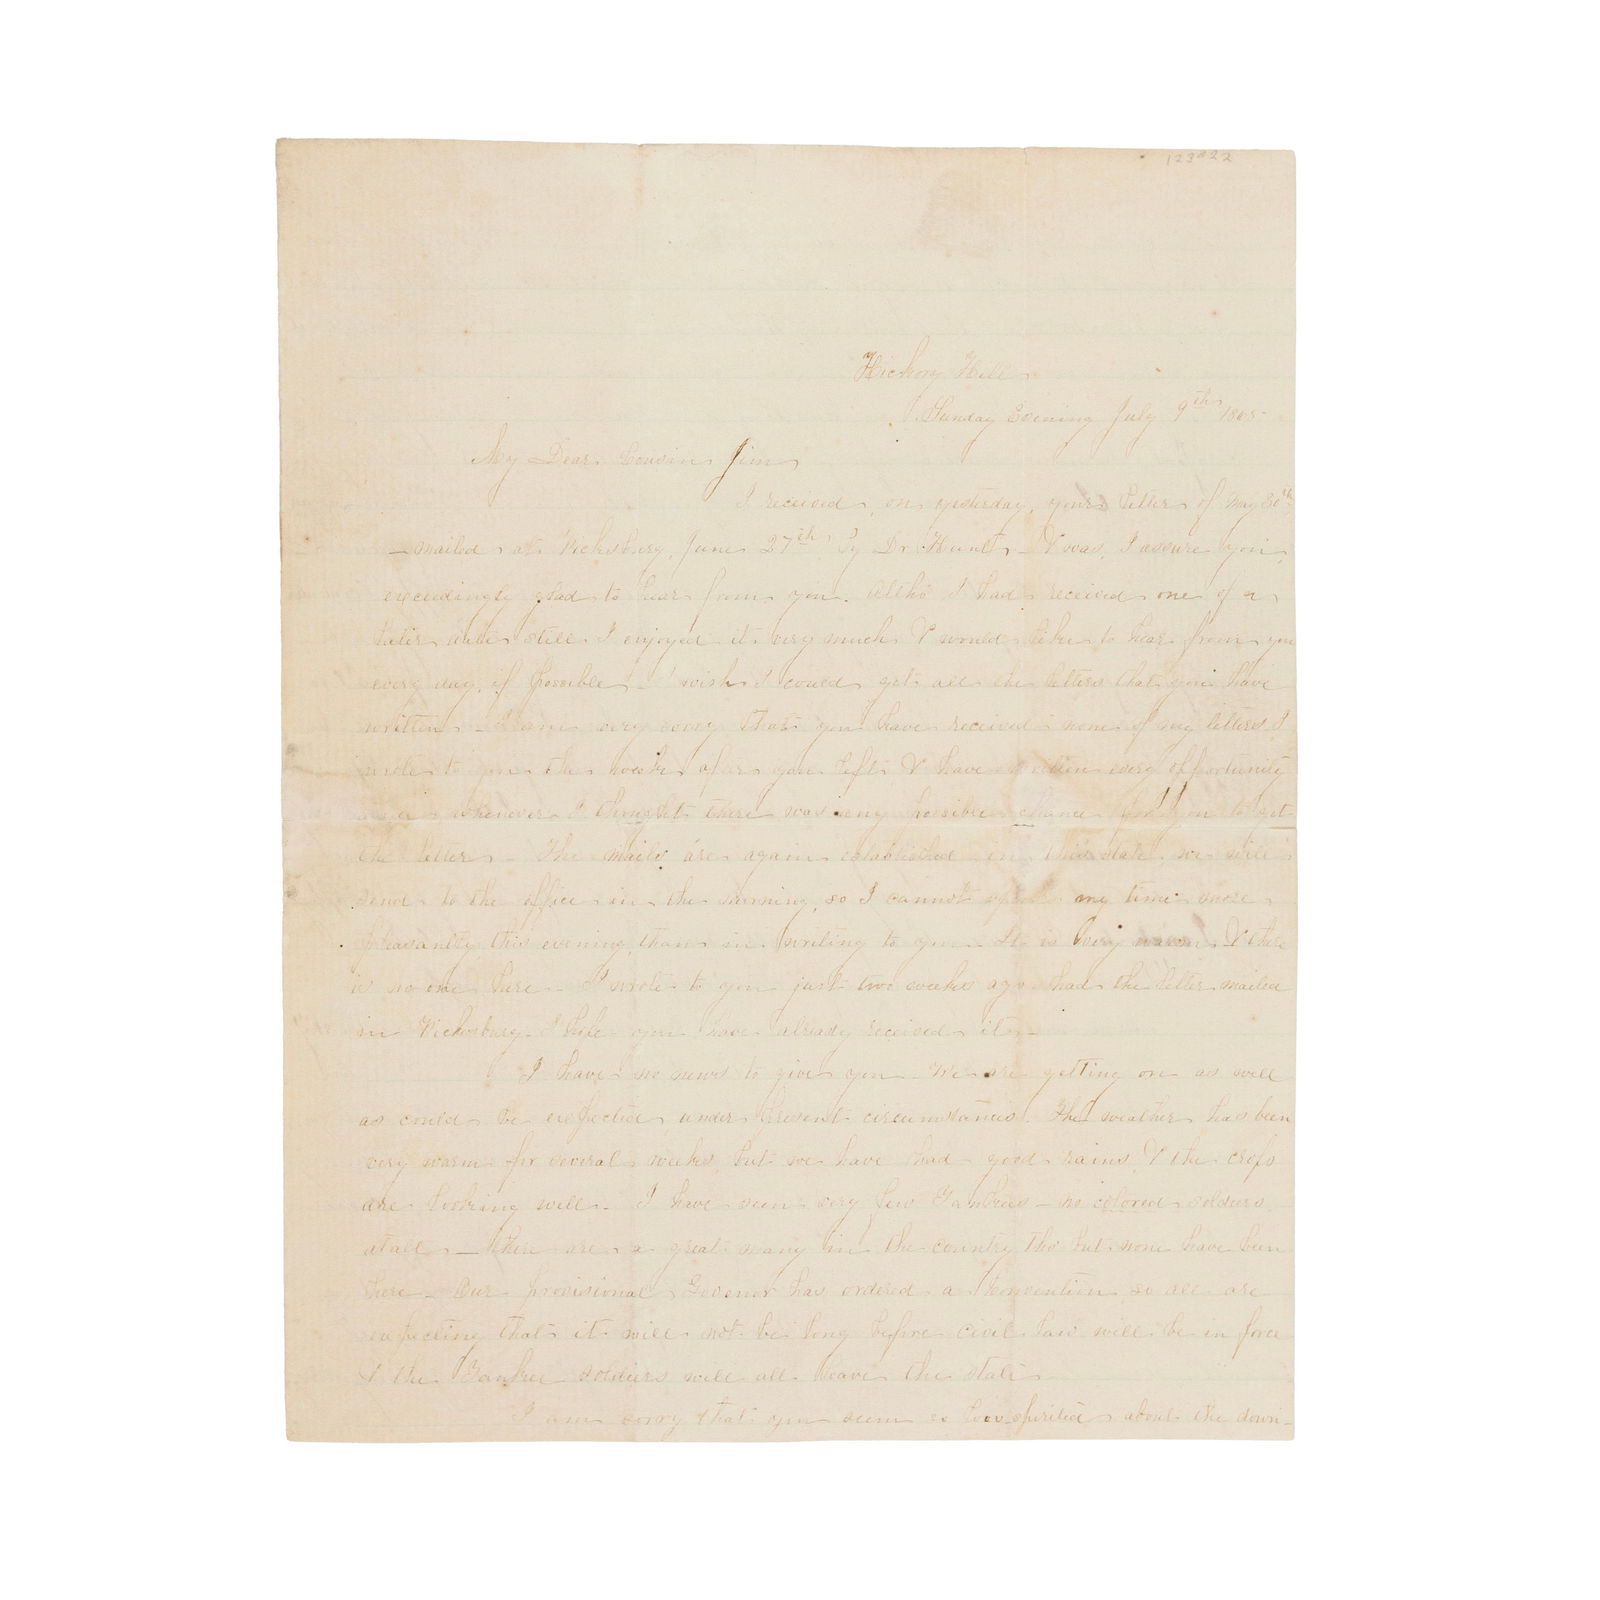 123#22
Hickory Hill
Sunday Evening July 9th 1865
My Dear Cousin Jim
I received, on yesterday, your letter of May 30th
– mailed at Vicksburg, June 27th by Dr. Hunt – & was, I assure you,
exceedingly glad to hear from you. Altho' I had received one of a
later date still I enjoyed it very much & would like to hear from you
every day, if possible – I wish I could get all the letters that you have
written – I am very sorry that you have received none of my letters I
wrote to you the week after you left & have written every opportunity
whenever I thought there was any possible chance for you to get
the letter – The mails are again established in this state we will
send to the office in the morning, so I cannot spend my time more
pleasantly this evening, than in writing to you – It is very warm & there
is no one here – I wrote to you just two weeks ago had the letter mailed
in Vicksburg – I hope you have already received it –
I have no news to give you – We are getting on as well
as could be expected under present circumstances. The weather has been
very warm for several weeks, but we have had good rains, & the crops
are looking well – I have seen very few Yankees – no colored soldiers
atall – there are a great many in the country tho' but none have been
here – Our provisional Govenor has ordered a Convention so all are
expecting that it will not be long before civil law will be in force
& the Yankee soldiers will all leave the state –
I am sorry that you seem so low-spirited about the down-